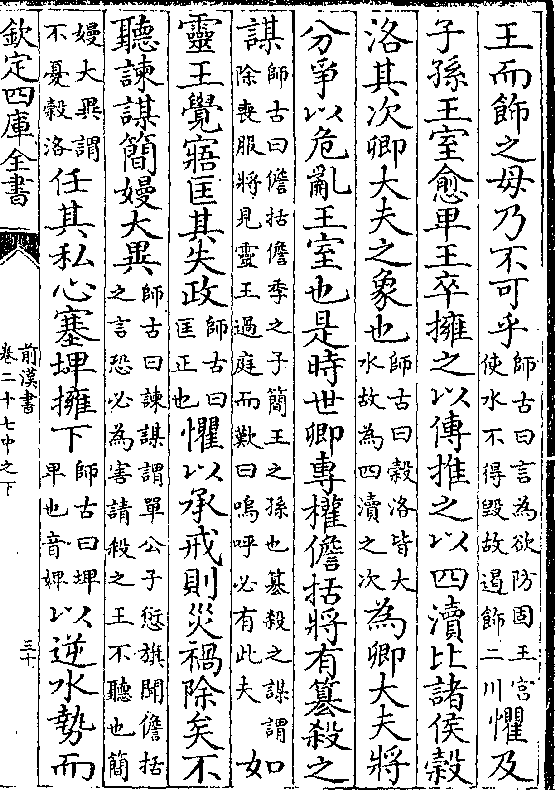 王而飾之毋乃不可乎師古曰言為欲防固王宮使水不得毁故遏飾二川懼及
子孫王室愈卑王卒擁之以傳推之以四瀆比諸侯糓
洛其次卿大夫之象也師古曰糓洛皆大水故為四瀆之次為卿大夫將
分爭以危亂王室也是時世卿專權儋括將有簒殺之
謀師古曰儋括儋季之子簡王之孫也簒殺之謀謂除喪服將見靈王過庭而歎曰嗚呼必有此夫如
靈王覺寤匡其失政師古曰匡正也懼以承戒則災禍除矣不
聽諫謀簡嫚大異師古曰諫謀謂單公子愆旗聞儋括之言恐必為害請殺之王不聽也簡
嫚大異謂不憂糓洛任其私心塞埤擁下師古曰埤卑也音婢以逆水勢而
欽定四庫全書
前漢書
卷二十七中之下
三十